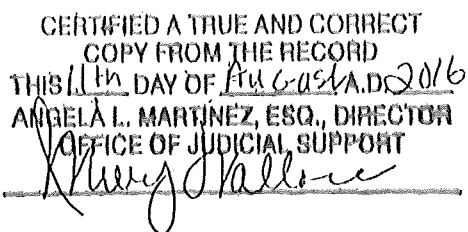 CERTIFIED A TRUE AND CORRECT
COPY FROM THE RECORD
THIS 11th DAY OF August A.D. 2016
ANGELA L. MARTINEZ, ESQ., DIRECTOR
OFFICE OF JUDICIAL SUPPORT